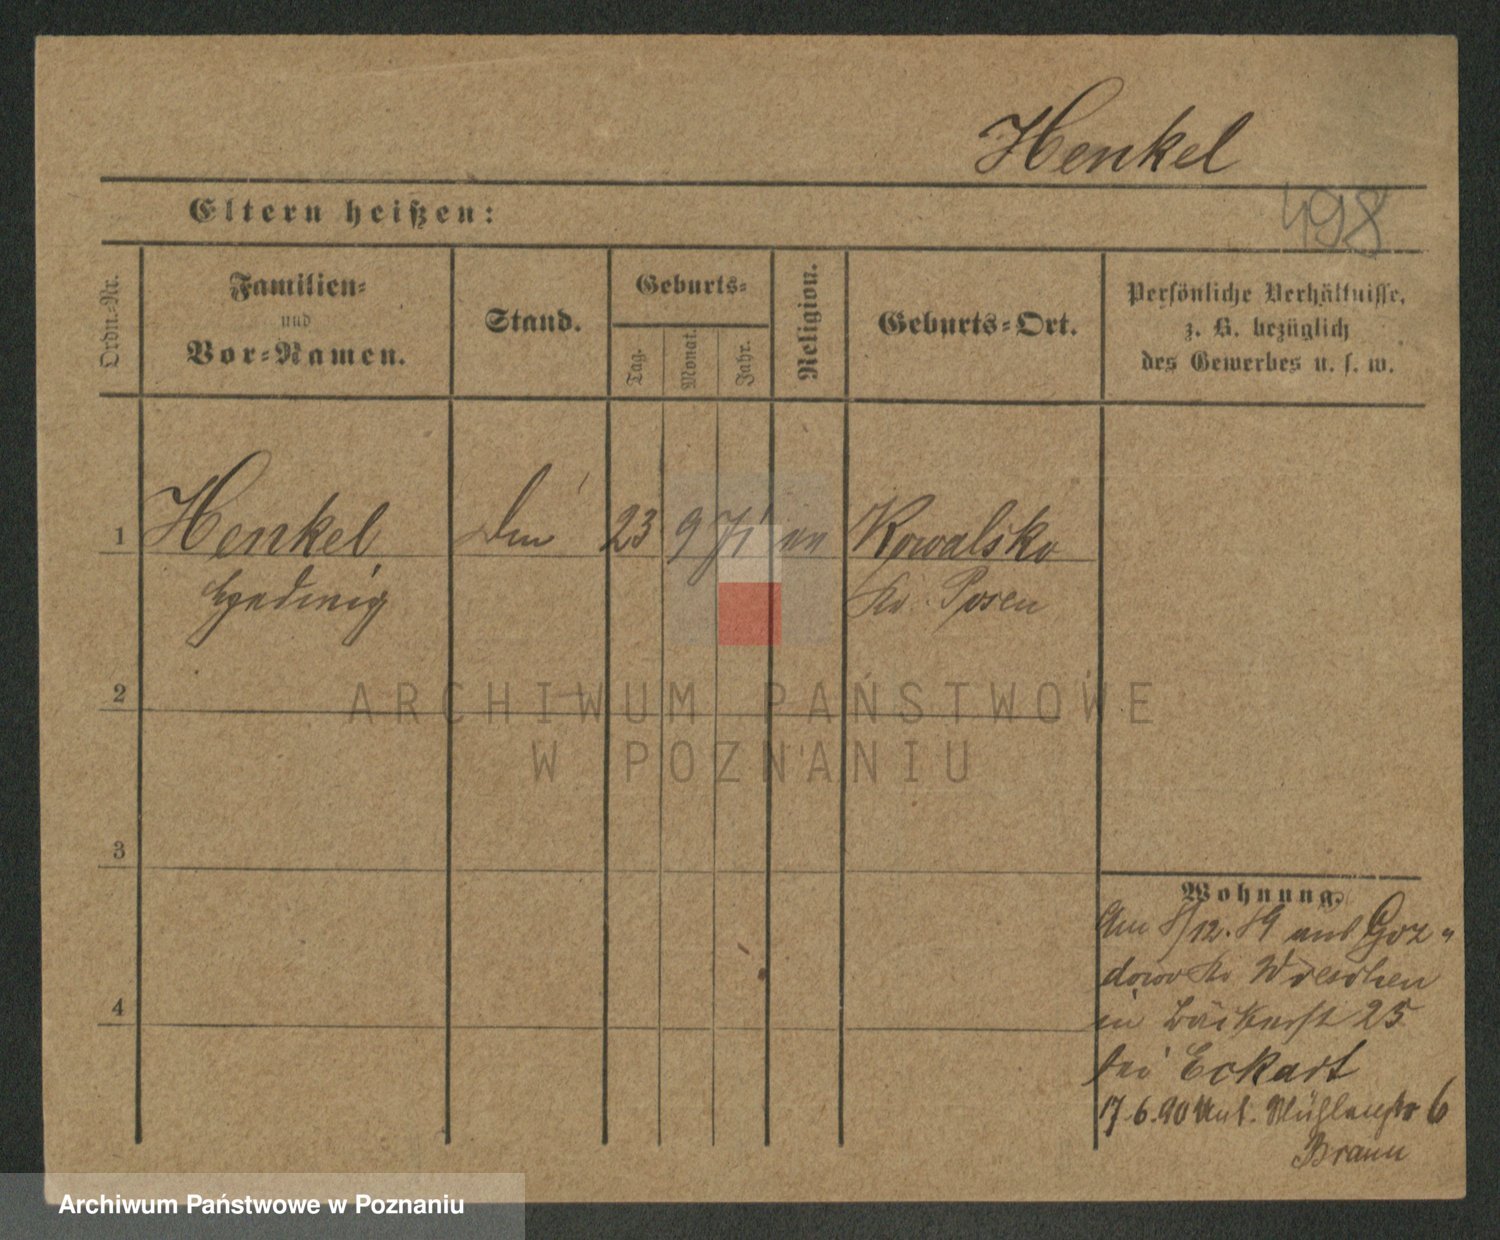 Henkel
Eltern heißen:
498
Ordn.-Nr.
Familien-
und
Vor-Namen.
Stand.
Geburts-
Tag.
Monat.
Jahr.
Religion.
Geburts-Ort.
Persönliche Verhältnisse,
z. B. bezüglich
des Gewerbes u. s. w.
1 Henkel 23 9 71 Kowalsko
Hedwig Kr. Posen
2
ARCHIWUM PAŃSTWOWE
W POZNANIU
3
Wohnung.
Am 8/12.89 aus Goz-
dowo Kr Wreschen
in Bäckerst 25
bei Eckart
4
17.6.90 Unt. Mühlenstr 6
Braun
Archiwum Państwowe w Poznaniu